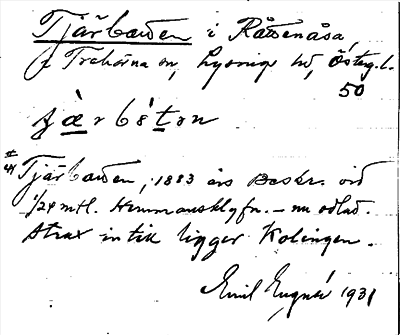 Tjärbotten i Råssnäsa,
f Trehörna sn, Lysings hd, Östeg. l.
50
t j æ r b ò t o n
Tjärbotten, 1883 års Beskr. vid
1/24 mtl. Hemmansklyfn. – nu odlad.
Strax intill ligger Kolingen.
Emil Eugnér 1931